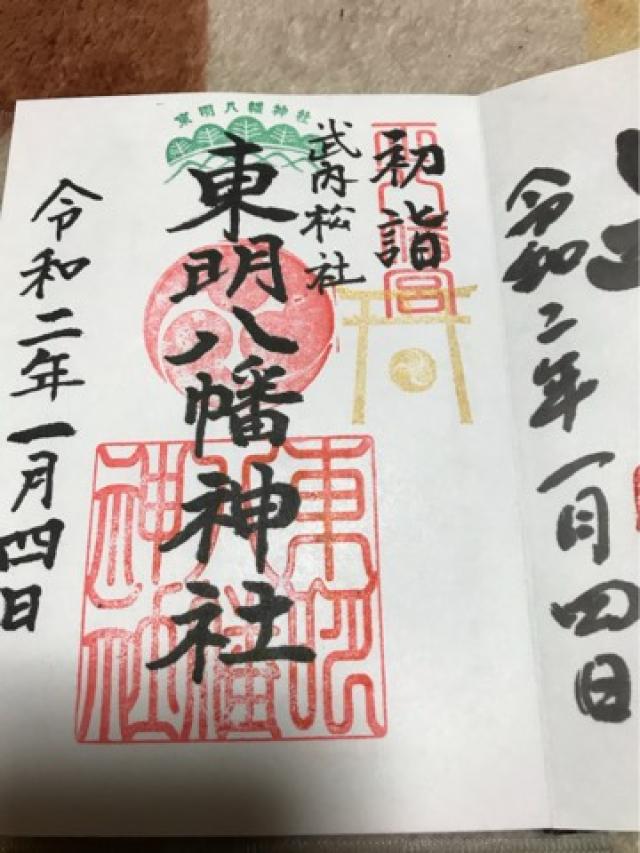 令和二年一月四日
東明八幡神社
初詣
武内松社
東明八幡神社
令和二年一月四日
東明八幡神社